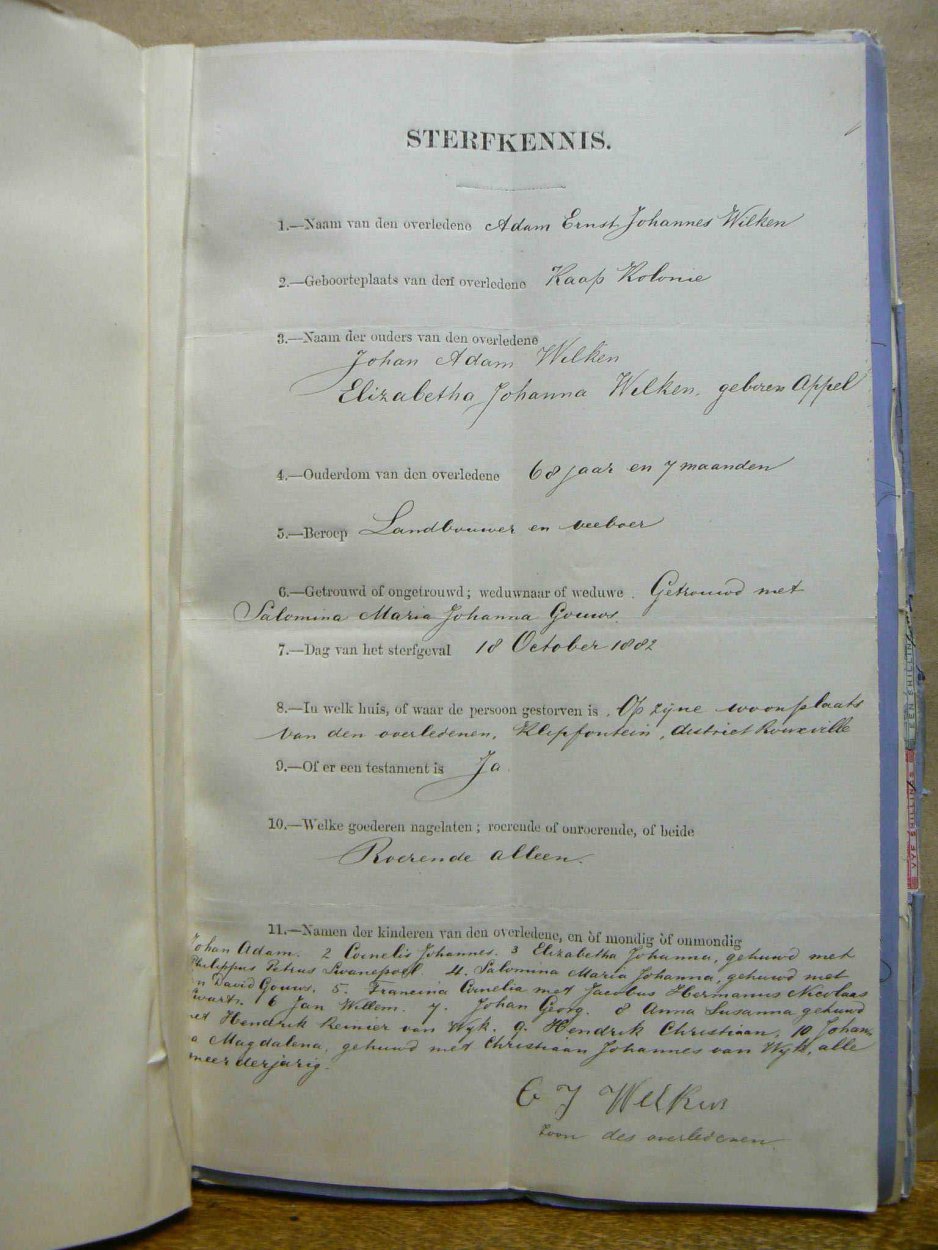 STERFKENNIS.
1.—Naam van den overledene Adam Ernst Johannes Wilken
2.—Geboorteplaats van den overledene Kaap Kolonie
3.—Naam der ouders van den overledene
Johan Adam Wilken
Elizabetha Johanna Wilken, geboren Appel
4.—Ouderdom van den overledene 68 jaar en 7 maanden
5.—Beroep Landbouwer en veeboer
6.—Getrouwd of ongetrouwd; weduwnaar of weduwe. Getrouwd met
Salomina Maria Johanna Gouws.
7.—Dag van het sterfgeval 18 October 1882
8.—In welk huis, of waar de persoon gestorven is. Op zyne woonplaats
van den overledenen, Klipfontein, district Rouxville
9.—Of er een testament is Ja.
10.—Welke goederen nagelaten; roerende of onroerende, of beide
Roerende alleen.
11.—Namen der kinderen van den overledene, en òf mondig òf onmondig
Johan Adam. 2 Cornelis Johannes. 3 Elizabetha Johanna, gehuwd met
Philippus Petrus Swanepoel 4. Salomina Maria Johanna, gehuwd met
n David Gouws, 5. Francina Cornelia met Jacobus Hermanus Nicolaas
wart. 6 Jan Willem. 7. Johan Georg. 8 Anna Susanna gehuwd
met Hendrik Reinier van Wyk. 9. Hendrik Christiaan. 10 Johan-
a Magdalena, gehuwd met Christiaan Johannes van Wyk, alle
meerderjarig.
C J Wilken
Zoon des overledenen
EEN SHILLING
VYF SHILLINGS